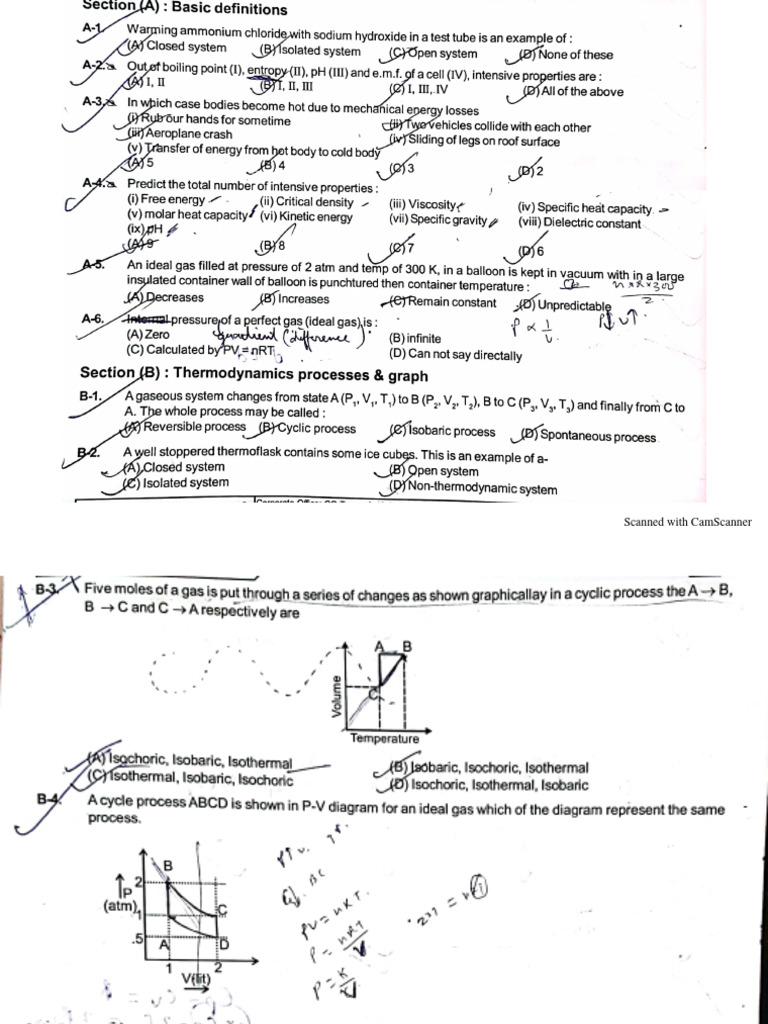 Section (A) : Basic definitions
A-1. Warming ammonium chloride with sodium hydroxide in a test tube is an example of :
(A) Closed system (B) Isolated system (C) Open system (D) None of these
A-2. Out of boiling point (I), entropy (II), pH (III) and e.m.f. of a cell (IV), intensive properties are :
(A) I, II (B) I, II, III (C) I, III, IV (D) All of the above
A-3. In which case bodies become hot due to mechanical energy losses
(i) Rub our hands for sometime (ii) Two vehicles collide with each other
(iii) Aeroplane crash (iv) Sliding of legs on roof surface
(v) Transfer of energy from hot body to cold body
(A) 5 (B) 4 (C) 3 (D) 2
A-4. Predict the total number of intensive properties :
(i) Free energy (ii) Critical density (iii) Viscosity (iv) Specific heat capacity
(v) molar heat capacity (vi) Kinetic energy (vii) Specific gravity (viii) Dielectric constant
(ix) pH
(A) 9 (B) 8 (C) 7 (D) 6
A-5. An ideal gas filled at pressure of 2 atm and temp of 300 K, in a balloon is kept in vacuum with in a large
insulated container wall of balloon is punchtured then container temperature :
(A) Decreases (B) Increases (C) Remain constant (D) Unpredictable
P ∝ 1/V
A-6. Internal pressure of a perfect gas (ideal gas) is :
gradient (difference)
(A) Zero (B) infinite
(C) Calculated by PV = nRT (D) Can not say directally
Section (B) : Thermodynamics processes & graph
B-1. A gaseous system changes from state A (P₁, V₁, T₁) to B (P₂, V₂, T₂), B to C (P₃, V₃, T₃) and finally from C to
A. The whole process may be called :
(A) Reversible process (B) Cyclic process (C) Isobaric process (D) Spontaneous process
B-2. A well stoppered thermoflask contains some ice cubes. This is an example of a-
(A) Closed system (B) Open system
(C) Isolated system (D) Non-thermodynamic system
Scanned with CamScanner
B-3. Five moles of a gas is put through a series of changes as shown graphicallay in a cyclic process the A → B,
B → C and C → A respectively are
A B
C
Volume
Temperature
(A) Isochoric, Isobaric, Isothermal (B) Isobaric, Isochoric, Isothermal
(C) Isothermal, Isobaric, Isochoric (D) Isochoric, Isothermal, Isobaric
B-4. A cycle process ABCD is shown in P-V diagram for an ideal gas which of the diagram represent the same
process.
B
2
P
(atm) 1 C
.5 A D
1 2
V(lit)
BC
PV = nRT
P = nRT/V
P = K/V